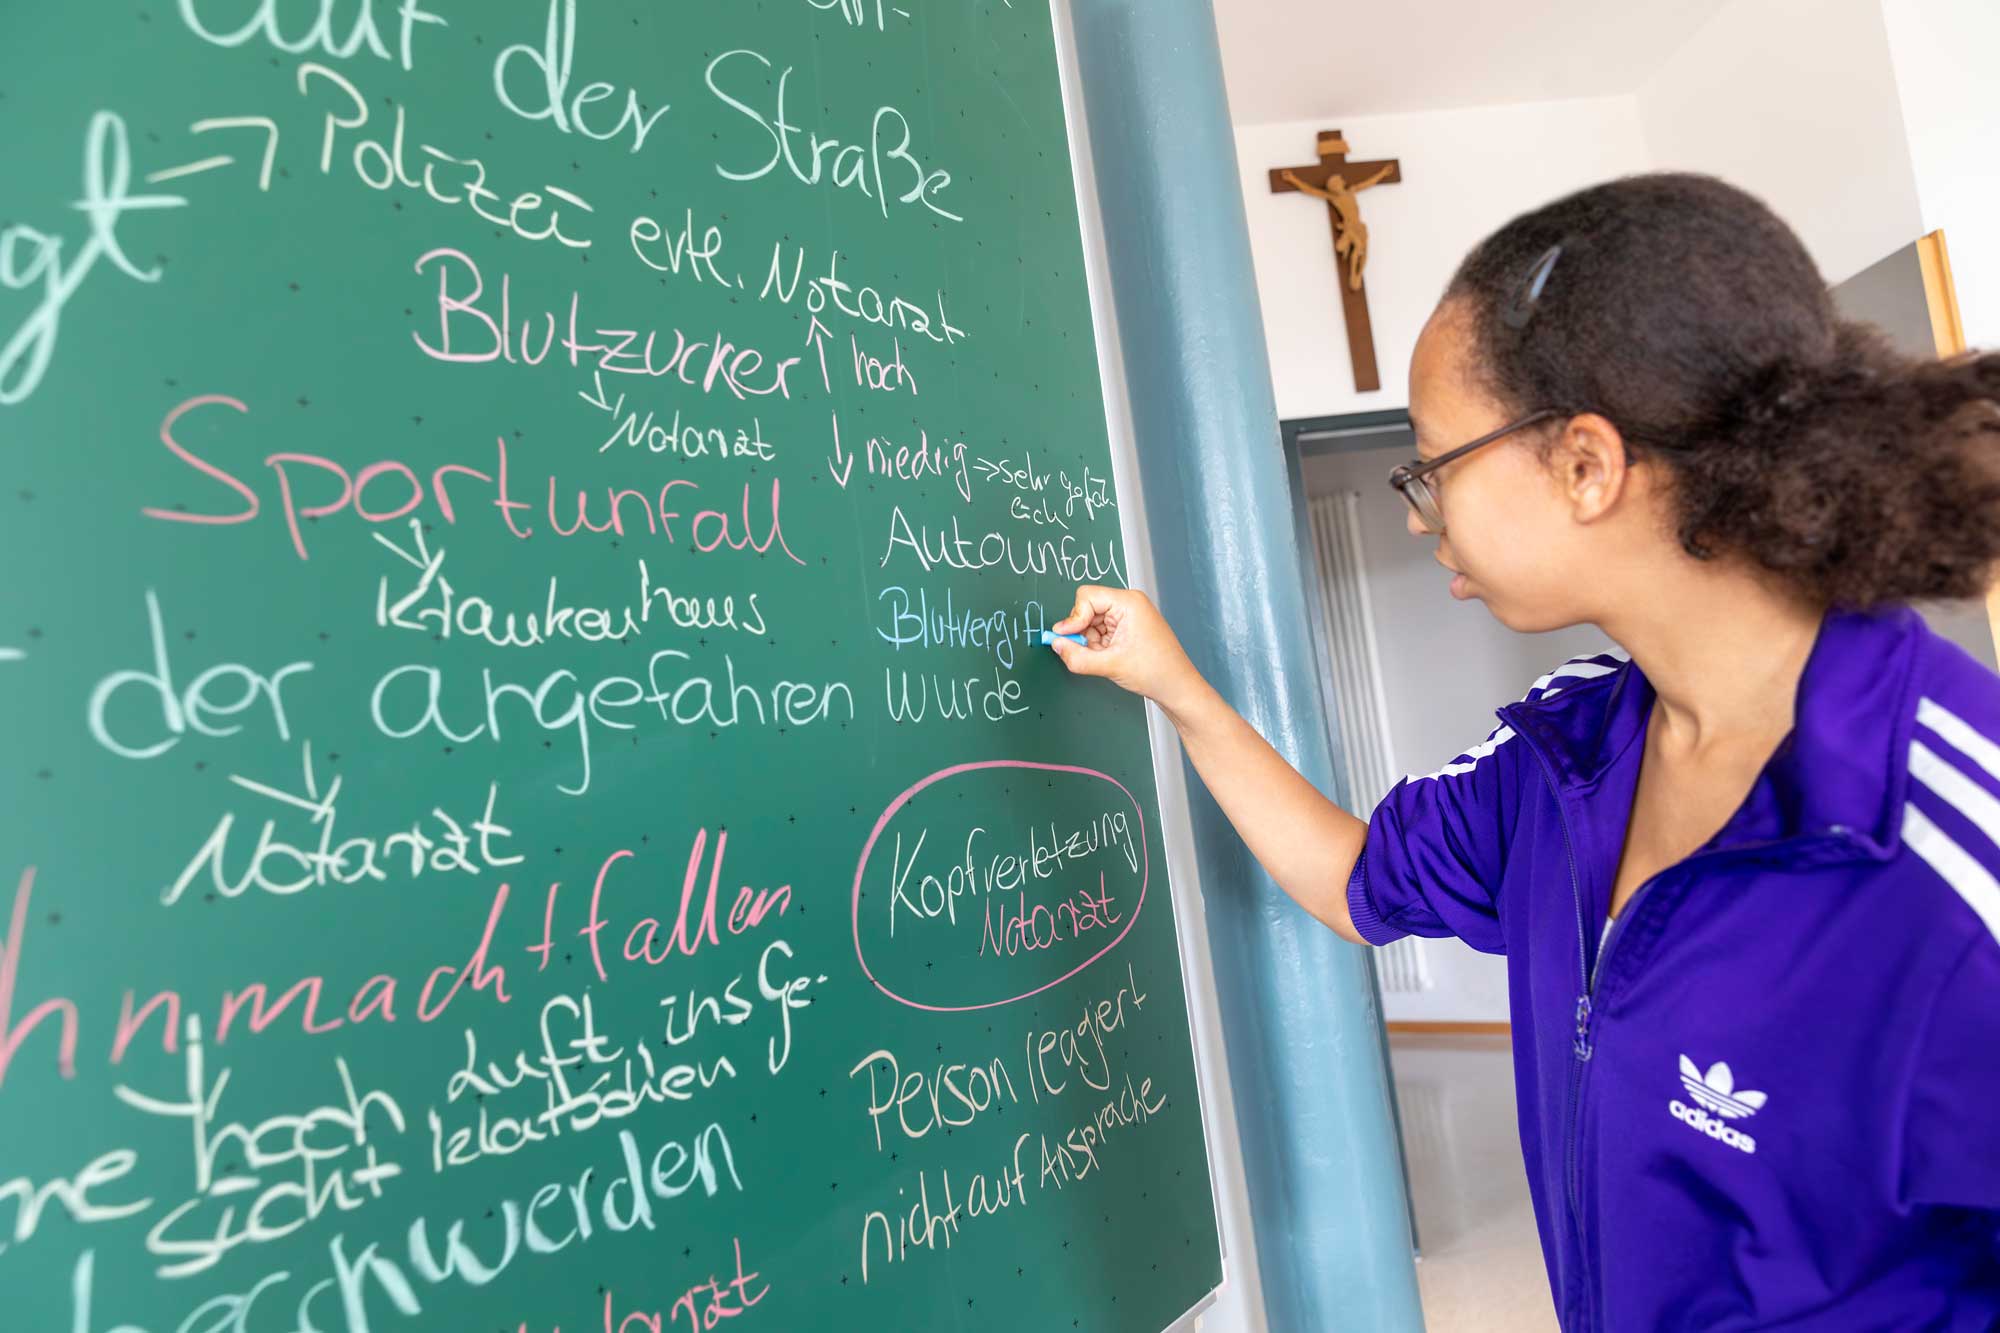 auf der Straße
gt → Polizei evtl. Notarzt
Blutzucker ↑ hoch
Notarzt
↓ niedrig → sehr gefähr
lich
Sportunfall
Autounfall
Krankenhaus
Blutvergift
der angefahren wurde
Notarzt
Kopfverletzung
Notarzt
hnmachtfallen
hoch Luft, ins Ge-
sicht klatschen
Person reagiert
nicht auf Ansprache
beschwerden
adidas